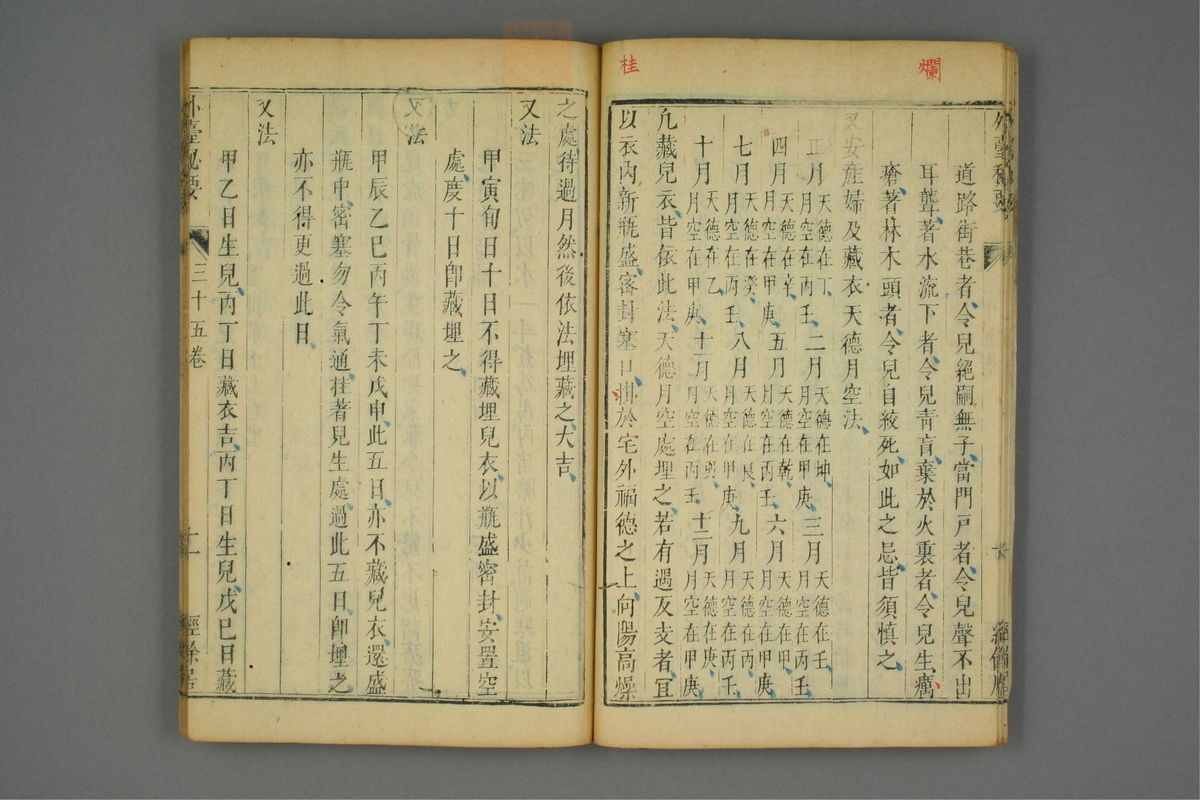 爛
桂
道路街巷者令兒絕嗣無子當門戶者令兒聲不出
耳聾著水流下者令兒青盲棄於火裏者令兒生癘
瘡著林木頭者令兒自絞死如此之忌皆須慎之
又安產婦及藏衣天德月空法
正月天德在丁月空在丙壬二月天德在坤月空在甲庚三月天德在壬月空在丙壬
四月天德在辛月空在甲庚五月天德在乾月空在丙壬六月天德在甲月空在甲庚
七月天德在癸月空在丙壬八月天德在艮月空在甲庚九月天德在丙月空在丙壬
十月天德在乙月空在甲庚十一月天德在巽月空在丙壬十二月天德在庚月空在甲庚
凡藏兒衣皆依此法天德月空處埋之若有遇反支者宜
以衣內新瓶盛密封塞口掛於宅外福德之上向陽高燥
之處待過月然後依法埋藏之大吉
又法
甲寅旬日十日不得藏埋兒衣以瓶盛密封安置空
處度十日卽藏埋之
又法
甲辰乙巳丙午丁未戊申此五日亦不藏兒衣還盛
瓶中密塞勿令氣通挂著兒生處過此五日卽埋之
亦不得更過此日
又法
甲乙日生兒丙丁日藏衣吉丙丁日生兒戊巳日藏
外臺秘要 三十五卷 十一 經餘居